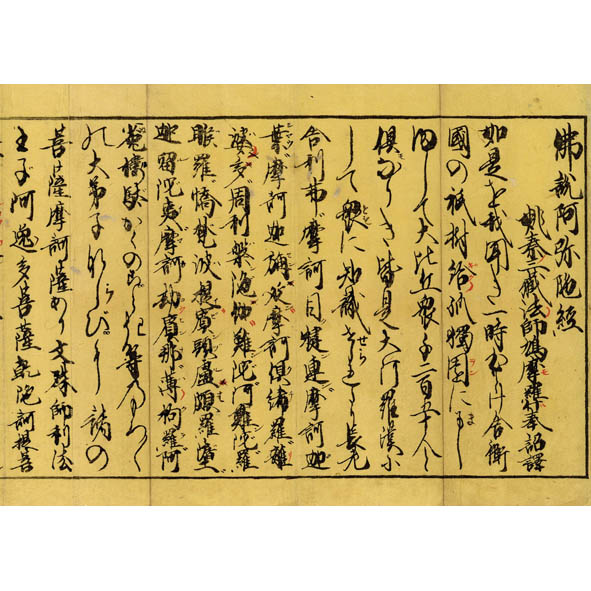 佛説阿弥陀經
姚秦三藏法師鳩摩羅什奉詔譯
如是を我聞き一時 舎衛
國の祇樹給孤獨園にまし
して大比丘衆千二百五十人と
倶なりき皆是大阿羅漢に
して衆に知識せられたり長老
舎利弗摩訶目犍連摩訶迦
葉摩訶迦旃延摩訶倶絺羅離
婆多周利槃陀伽難陀阿難陀羅
睺羅憍梵波提賓頭盧頗羅堕
迦留陀夷摩訶劫賓那薄拘羅阿
㝹樓駄かくのごとき等のもろく
の大弟子ならびに諸の
菩薩摩訶薩あり文殊師利法
王子阿逸多菩薩乾陀訶提菩